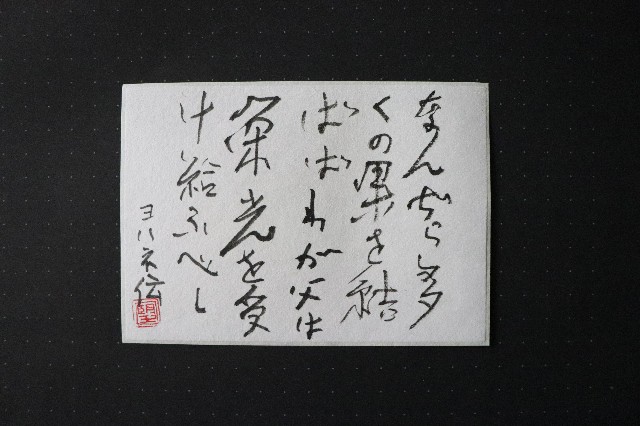 なんぢら多
くの果を結
ばばわが父は
榮光を受
け給ふべし
ヨハネ伝